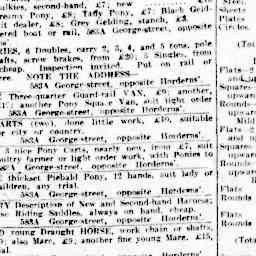 sulkies, second-hand, £7, new
Creamy Pony, £8; Taffy Pony, £7; Black Geld-
suit dealer, £5; Grey Gelding, stanch, £3.
covered boat or rail, 583A George-street, opposite
RIES, 6 Doubles, carry 2, 3, 4, and 5 tons, pole
shafts, screw brakes, from £20; 5 Singles, from
cheap. Inspection invited. Put on rail or
NOTE THE ADDRESS—
583A George-street, opposite Horderns'.
Three-quarter Guard-rail VAN, £9; another,
another Pony Square Van, suit light order
583A George-street, opposite Horderns'.
CARTS (two), done little work, £10, suitable
for city or country.
583A George-street, opposite Horderns'.
3 nice Pony Carts, nearly new, from £7, suit
poultry farmer or light order work, with Ponies to
583A George-street, opposite Horderns'.
thickset Piebald Pony, 12 hands, suit lady or
children, any trial.
583A George-street, opposite Horderns'.
Description of New and Second-hand Harness;
Riding Saddles, always on hand, cheap.
583A George-street, opposite Horderns'.
young Draught HORSE, work chain or shafts,
also Mare, £9; another fine young Mare, £15,
Steel,
Sheets
Plates
Circles
(Tot
Flats
upwar
Rounds—
upward
and up
Squares
upwar
Rounds
Squares
upwar
Flats
Rounds
Flats
Rounds
(Total